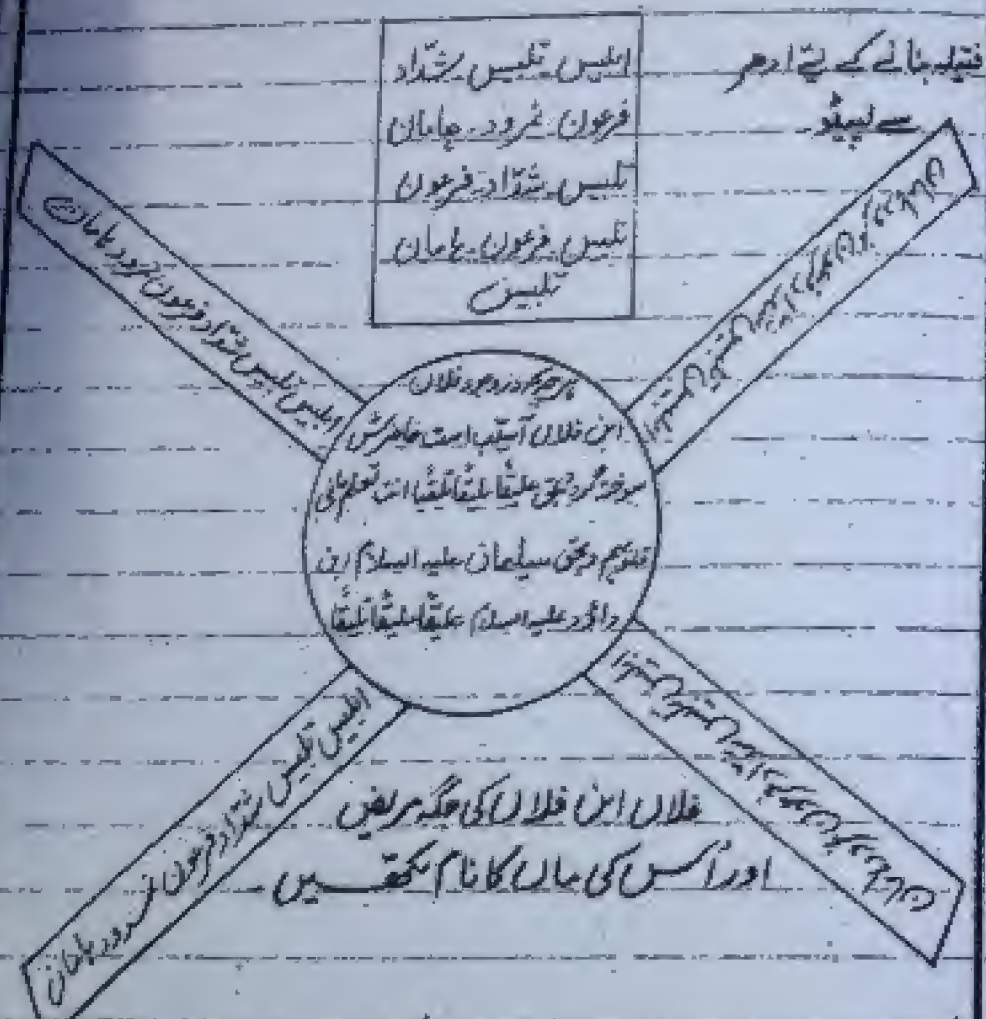 فتیلہ بنانے کے لئے ادھر
سے لپیٹو
ابلیس تلبیس شدّاد
فرعون۔ نمرود۔ ہامان
تلبیس۔ شدّاد۔ فرعون
تلبیس۔ فرعون۔ ہامان
تلبیس
ابلیس تلبیس شدّاد فرعون نمرود ہامان
ابلیس تلبیس شدّاد فرعون نمرود ہامان
ہر چہ در وجود فلاں
ابن فلاں آسیب است حاضر
سوختہ گردد بحق علیقًا ملیقًا تلیقًا انت تعلم مافی
قلوبہم و بحق سلیمان علیہ السلام ابن
داؤد علیہ السلام علیقًا ملیقًا تلیقًا
ابلیس تلبیس شدّاد فرعون نمرود ہامان
ابلیس تلبیس شدّاد فرعون نمرود ہامان
فلاں ابن فلاں کی جگہ مریض
اور اُس کی ماں کا نام لکھیں